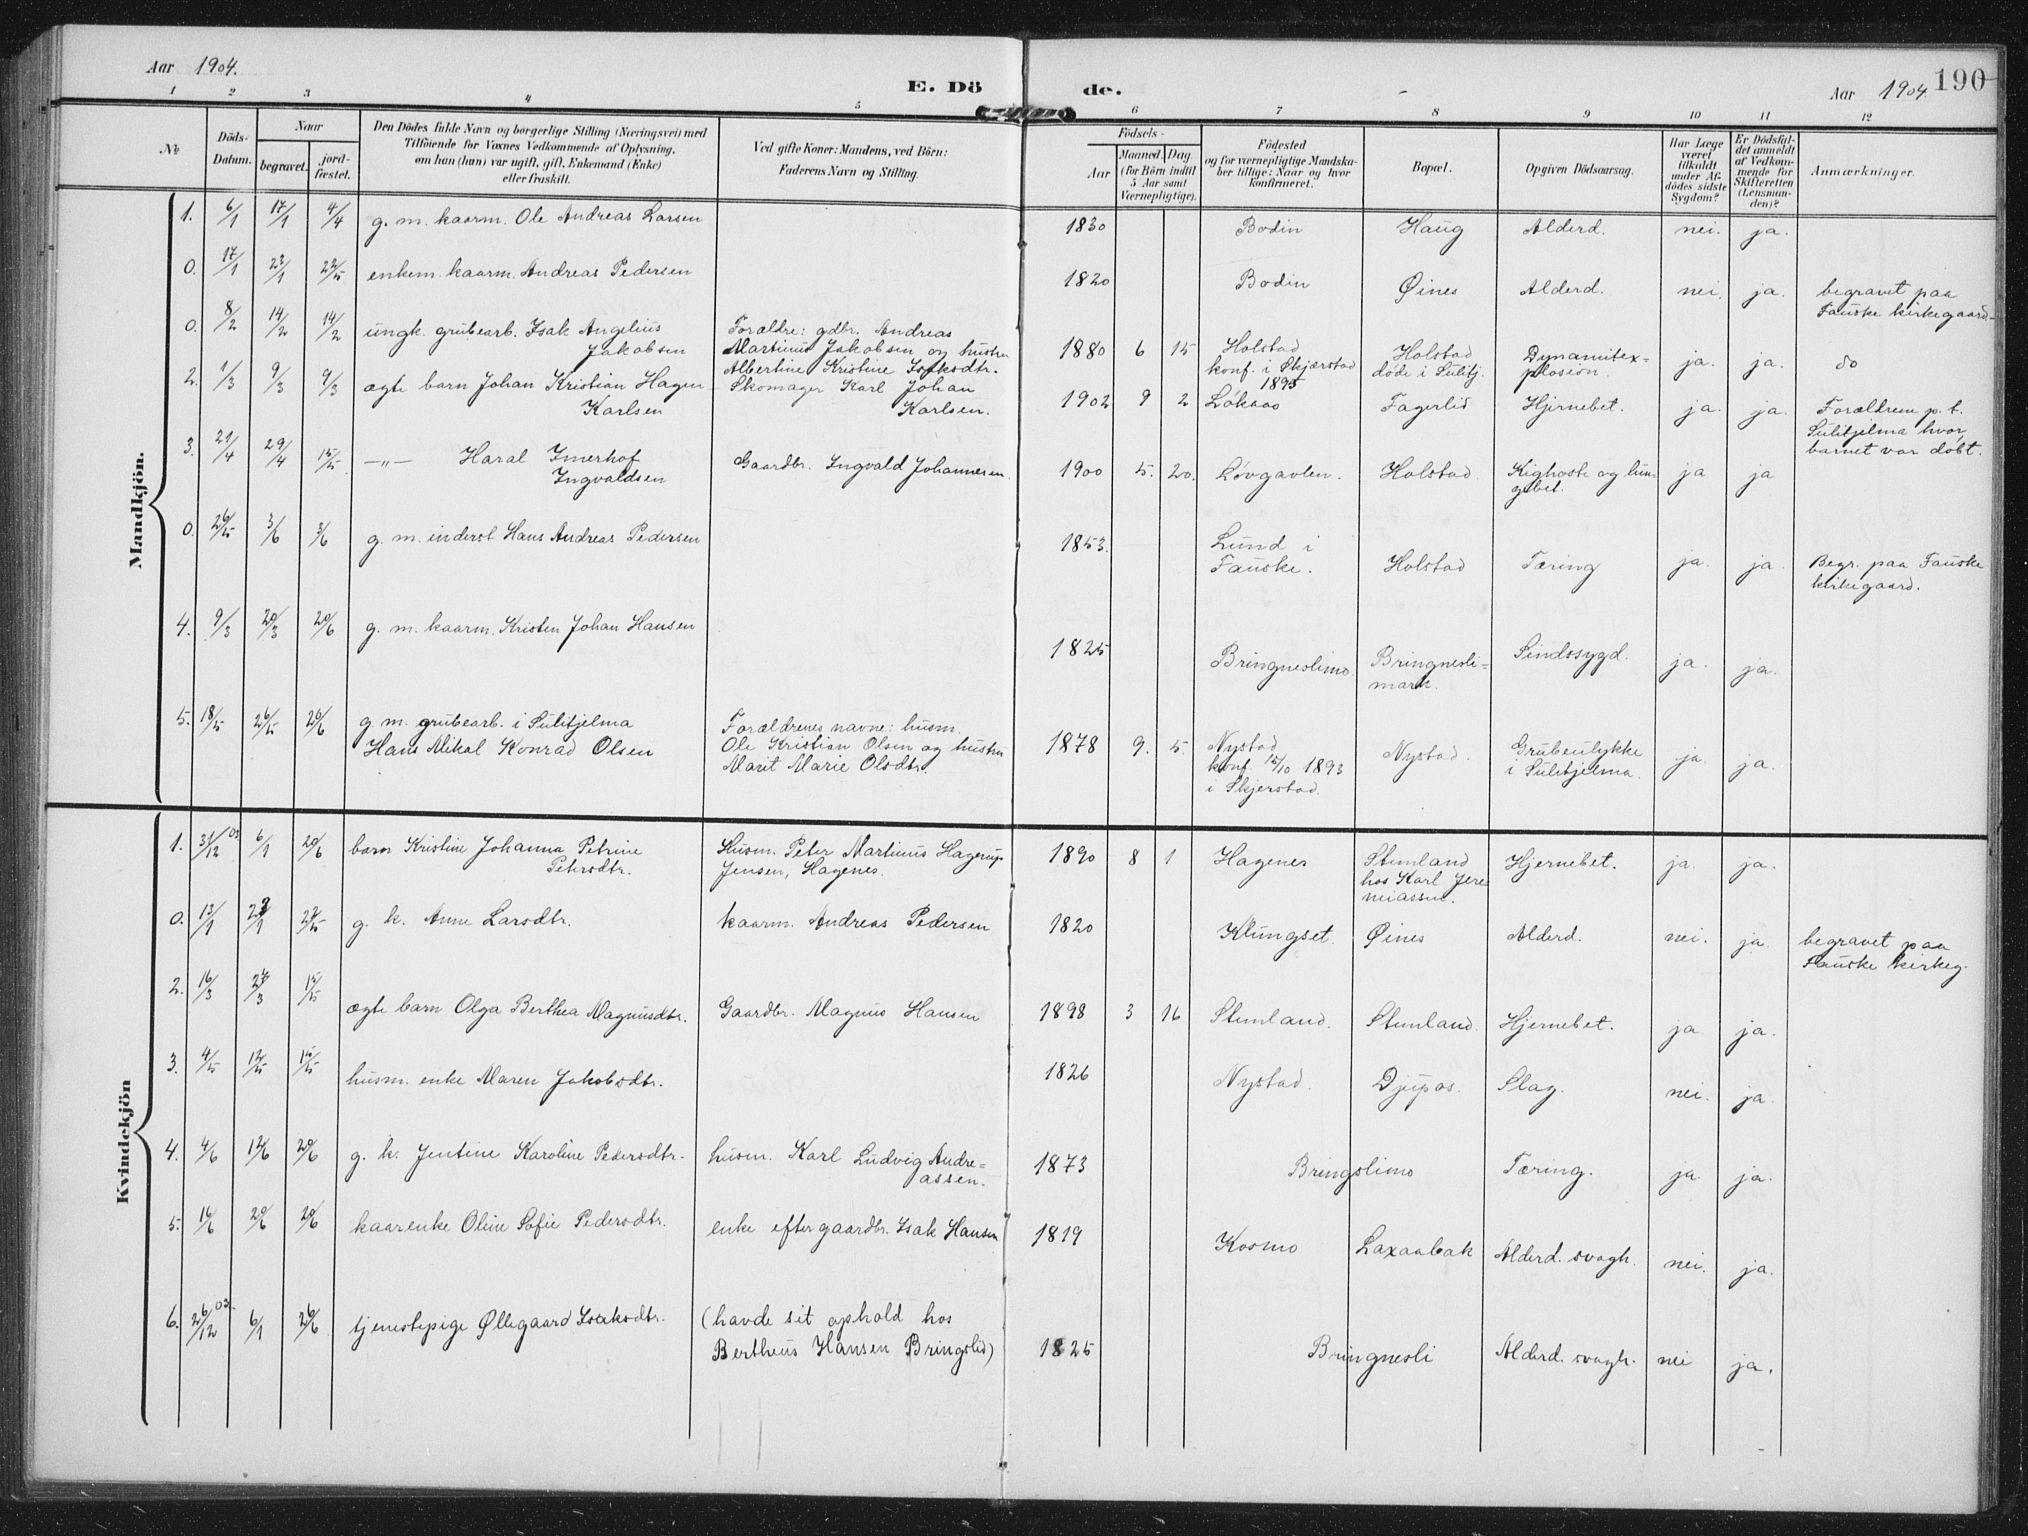 Aar 1904.
E. Dö
de.
Aar 1904.
190
1 2 3 4 5 6 7 8 9 10 11 12
№
Döds-
Datum.
Naar
begravet.
jord-
fæstet.
Den Dödes fulde Navn og borgerlige Stilling (Næringsvei) med
Tilföiende for Voxnes Vedkommende af Oplysning,
om han (hun) var ugift, gift, Enkemand (Enke)
eller fraskilt.
Ved gifte Koner: Mandens, ved Börn:
Faderens Navn og Stilling.
Födsels-
Aar
Maaned. Dag.
(for Börn indtil
5 Aar samt
Værnepligtige).
Födested
og for værnepligtige Mandska-
ber tillige: Naar og hvor
konfirmeret.
Bopæl.
Opgiven Dödsaarsag.
Har Læge
været
tilkaldt
under Af-
dödes sidste
Sygdom?
Er Dödsfal-
det anmeldt
af Vedkom-
mende for
Skifteretten
(Lensman-
den)?
Anmærkninger.
Mandkjön.
1. 6/1 17/1 4/4 g. m. kaarm. Ole Andreas Larsen 1830 Bodin Haug Alderd. nei. ja.
0. 17/1 23/1 23/5 enkem. kaarm. Andreas Pedersen 1820 Bodin Øines Alderd. nei. ja. begravet paa
Fauske kirkegaard.
0. 8/2 14/2 14/2 ungk. grubearb. Isak Angelius
Jakobsen
Forældre: gdbr. Andreas
Martinus Jakobsen og hustru
Albertine Kristine Isaksdtr.
1880 6 15 Holstad
konf. i Skjærstad
1895
Holstad
døde i Sulitj.
Dynamitex-
plosion.
ja. ja. do
2. 1/3 9/3 9/3 ægte barn Johan Kristian Hagen
Karlsen
Skomager Karl Johan
Karlsen.
1902 9 2 Løkaas Fagerlid Hjernebet. ja. ja. Forældrene p. t.
Sulitjelma hvor
barnet var døbt.
3. 21/4 29/4 15/5 —„— Haral Imerhof
Ingvaldsen
Gaardbr. Ingvald Johannesen.
1900 5. 20. Løvgavlen. Holstad. Kighoste og lun-
gebet.
ja ja
0. 26/5 3/6 3/6 g. m. inderst Hans Andreas Pedersen 1853. Lund i
Fauske.
Holstad Tæring ja. ja. Begr. paa Fauske
kirkegaard.
4. 9/3 20/3 20/6 g. m. kaarm. Kristen Johan Hansen 1825 Bringneslimo Bringnesli-
mark.
Sindssygd. ja. ja.
5. 18/5 26/5 20/6 g. m. grubearb. i Sulitjelma
Hans Mikal Konrad Olsen
Forældrenes navne: husm.
Ole Kristian Olsen og hustru
Marit Marie Olsdtr.
1878 9. 5. Nystad
konf. 15/10 1893
i Skjerstad.
Nystad. Grubeulykke
i Sulitjelma.
ja. ja.
Kvindekjön
1. 31/12 03 6/1 20/6 barn Kristine Johanna Petrine
Petersdtr.
Husm. Peter Martinus Hagerup
Jensen, Hagenes.
1890 8 1 Hagenes Stemland
hos Karl Jere-
miassen.
Hjernebet. ja. ja.
0. 13/1 23/1 23/5 g. k. Anne Larsdtr. kaarm. Andreas Pedersen 1820 Klungset. Øines Alderd. nei. ja. begravet paa
Fauske kirkeg.
2. 16/3 24/3 15/5 ægte barn Olga Berthea Magnusdtr. Gaardbr. Magnus Hansen 1898 3 16 Stemland. Stemland. Hjernebet. ja. ja.
3. 4/5 12/5 15/5 husm. enke Maren Jakobsdtr. 1826 Nystad. Djupos. Slag. nei. ja.
4. 4/6 12/6 20/6 g. k. Jentine Karoline Pedersdtr. husm. Karl Ludvig Andre-
assen.
1873 Bringslimo Tæring. ja. ja.
5. 16/6 20/6 20/6 kaarenke Oline Sofie Pedersdtr. enke efter gaardbr. Isak Hansen 1819 Kosmo Laxaabak Alderd. svagh. nei. ja.
6. 26/12 03. 6/1 20/6 tjenestepige Øllegaard Isaksdtr. (havde sit ophold hos
Bertheus Hansen Bringslid)
1825 Bringnesli Alderd. svagh. nei ja.